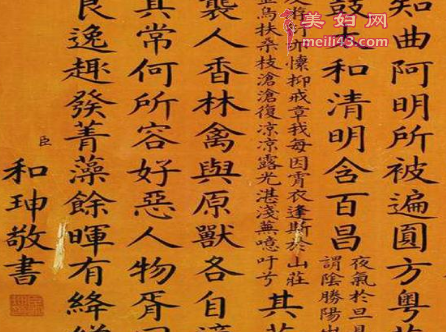 美妇网
meili43.com
知曲阿明所被遍圓方粵
鼓太和清明含百昌
夜氣於旦是
謂陰勝陽
懷抑戒章我每因宵衣逢斯於山莊
烏扶桒枝滄滄復凉凉露光湛淺蕪噫吁兮
其
襲人香林禽與原獸各自適
其常何所容好惡人物胥
良逸趣發菁藻餘暉有絳
臣
和珅敬書